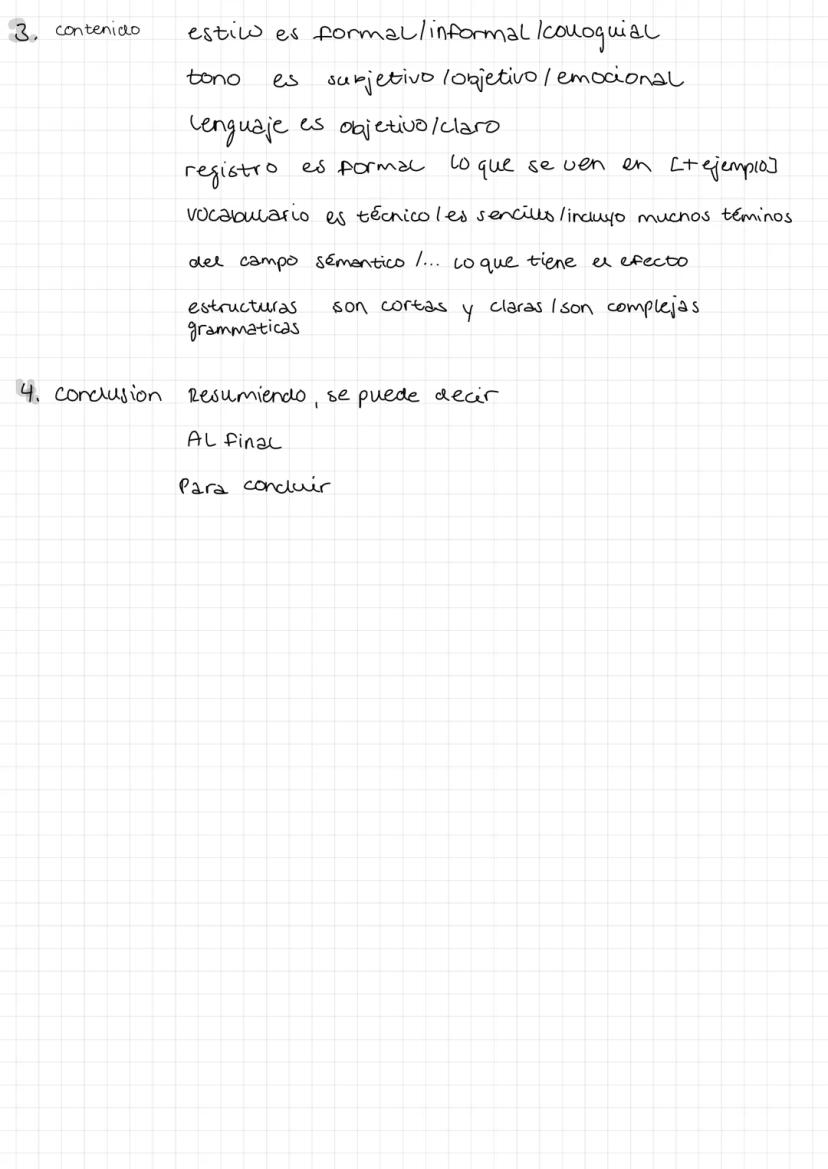 3. contenido estilo es formal/informal/coloquial
tono es subjetivo/objetivo/emocional
lenguaje es objetivo/claro
registro es formal lo que se ven en [+ejemplo]
vocabulario es técnico/es sencillo/incluyo muchos téminos
del campo sémantico /... lo que tiene el efecto
estructuras son cortas y claras/son complejas
grammaticas
4. conclusion Resumiendo, se puede decir
Al final
Para concluir